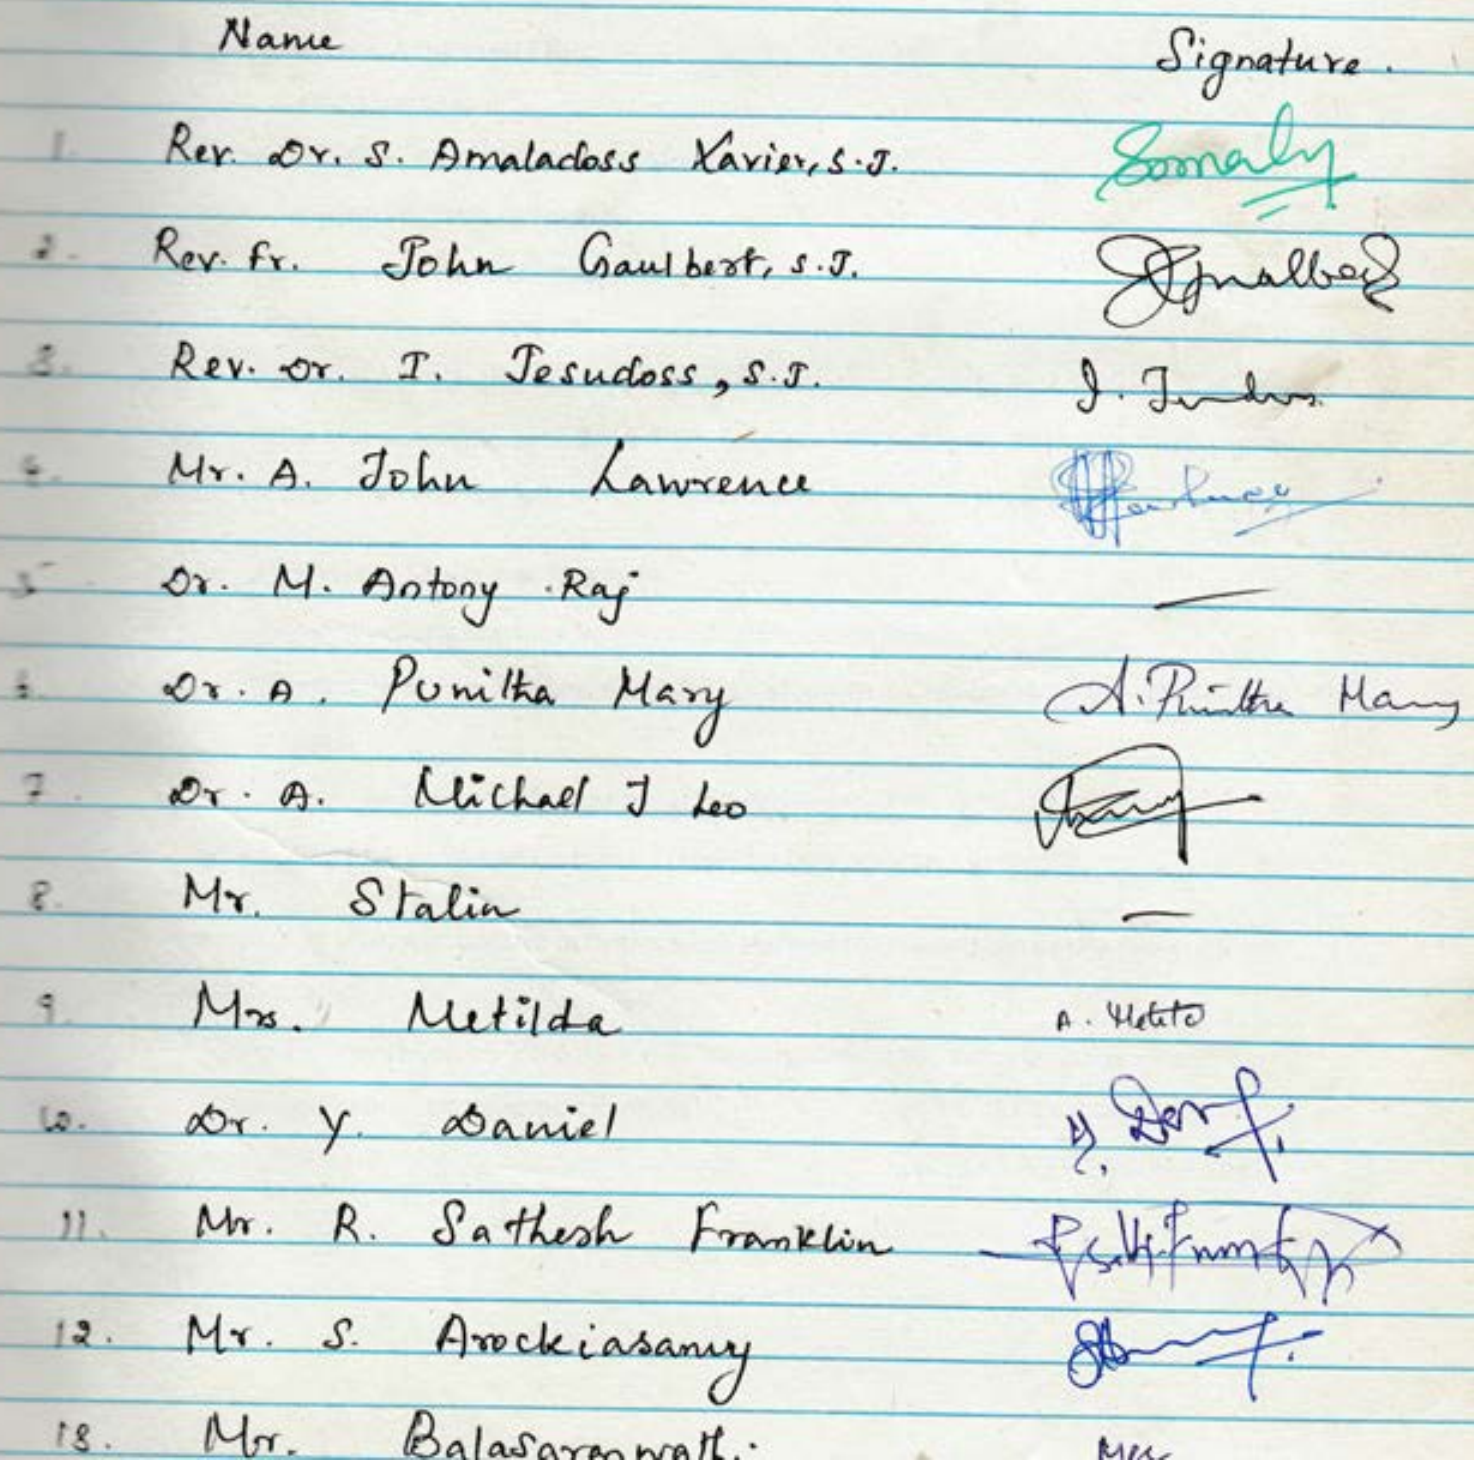 Name Signature.
1. Rev. Dr. S. Amaladoss Xavier, S.J.
2. Rev. Fr. John Gaulbert, S.J.
3. Rev. Dr. I. Jesudoss, S.J. I.
4. Mr. A. John Lawrence
5 Dr. M. Antony Raj —
6. Dr. A. Punitha Mary A. Punitha Mary
7. Dr. A. Michael J Leo
8. Mr. Stalin —
9. Mrs. Metilda A.
10. Dr. Y. Daniel Y.
11. Mr. R. Sathesh Franklin
12. Mr. S. Arockiasamy
13. Mr.